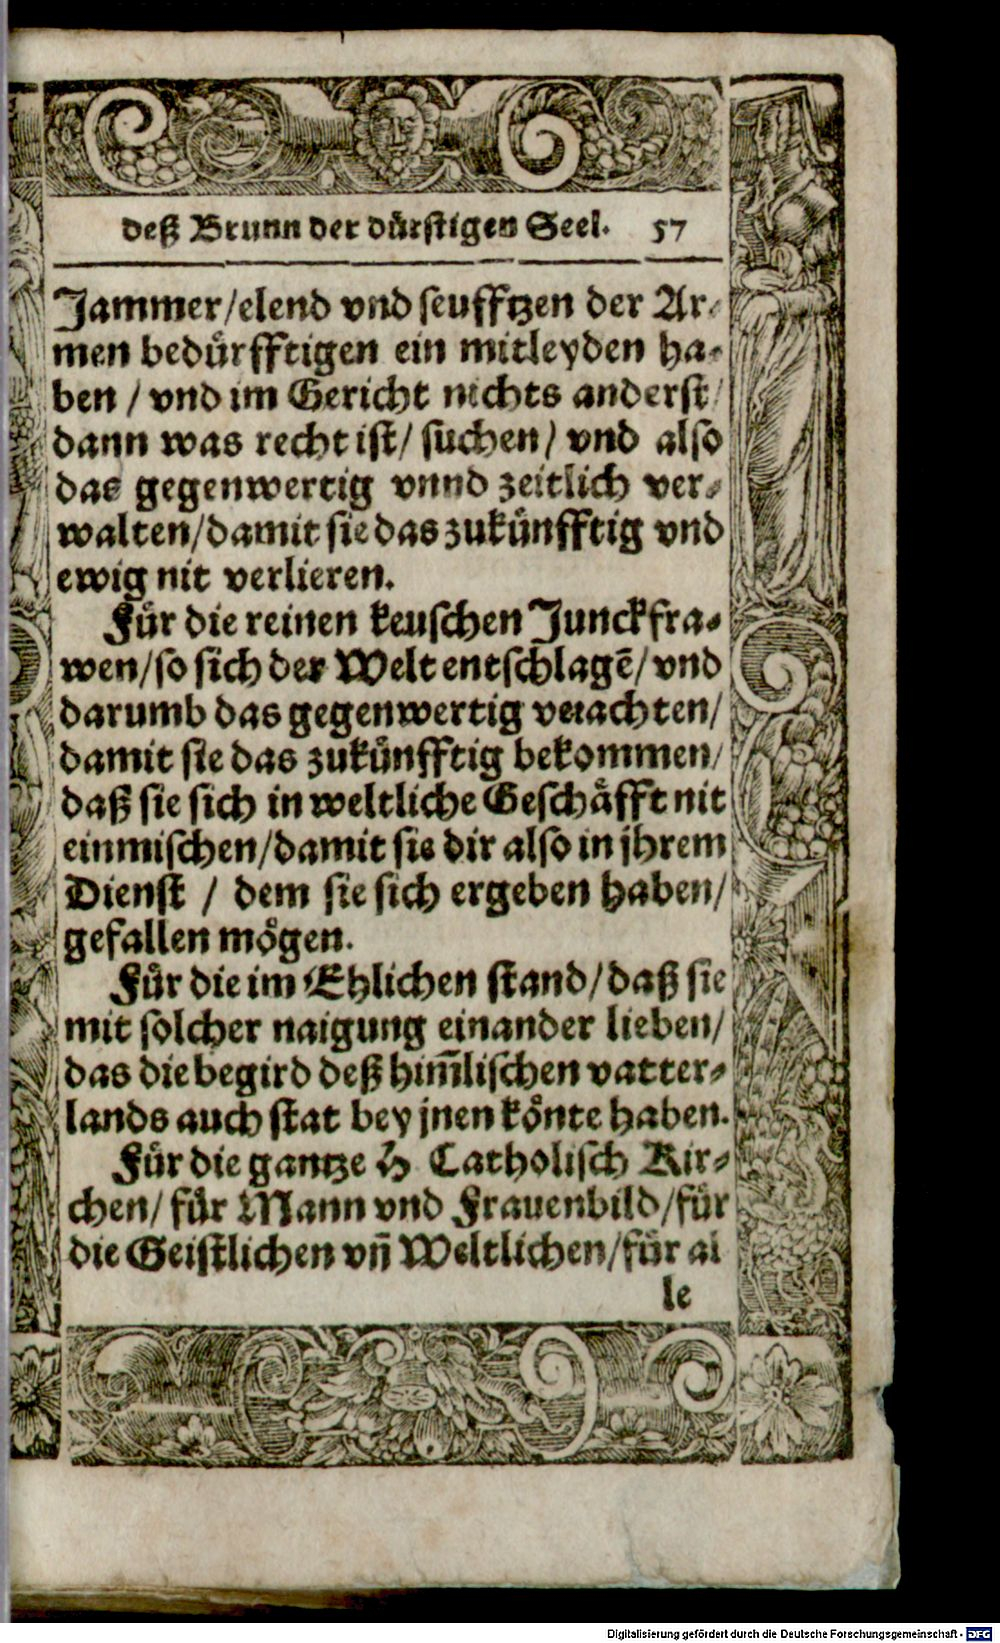 deß Brunn der dürstigen Seel. 57
Jammer/elend vnd seufftzen der Ar-
men bedürfftigen ein mitleyden ha-
ben / vnd im Gericht nichts anderst/
dann was recht ist/ suchen/ vnd also
das gegenwertig vnnd zeitlich ver-
walten/damit sie das zukünfftig vnd
ewig nit verlieren.
Für die reinen keuschen Junckfra-
wen/so sich der Welt entschlagē/ vnd
darumb das gegenwertig verachten/
damit sie das zukünfftig bekommen/
daß sie sich in weltliche Geschäfft nit
einmischen/damit sie dir also in jhrem
Dienst / dem sie sich ergeben haben/
gefallen mögen.
Für die im Ehlichen stand/daß sie
mit solcher naigung einander lieben/
das die begird deß him̄lischen vatter-
lands auch stat bey jnen könte haben.
Für die gantze H Catholisch Kir-
chen/ für Mann vnd Frauenbild/für
die Geistlichen vn̄ Weltlichen/für al
le
Digitalisierung gefördert durch die Deutsche Forschungsgemeinschaft - DFG